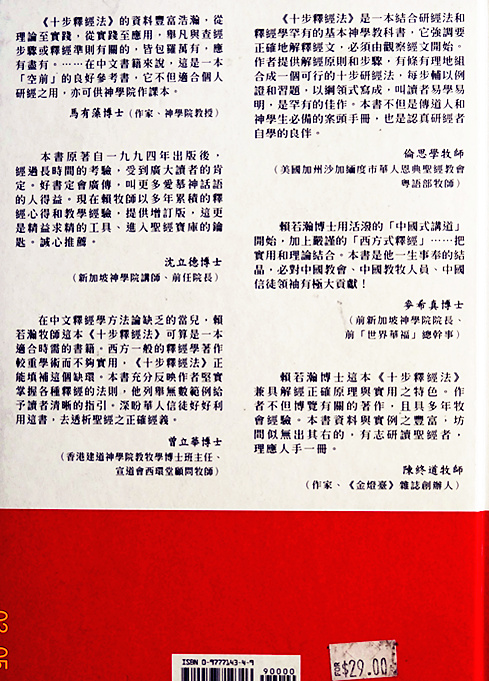 《十步釋經法》的資料豐富浩瀚，從
理論至實踐，從實踐至應用，舉凡與查經
步驟或釋經準則有關的，皆包羅萬有，應
有盡有。……在中文書籍來說，這是一本
「空前」的良好參考書，它不但適合個人
研經之用，亦可供神學院作課本。
馬有藻博士（作家、神學院教授）
本書原著自一九九四年出版後，
經過長時間的考驗，受到廣大讀者的肯
定。好書定會廣傳，叫更多愛慕神話語
的人得益。現在賴牧師以多年累積的釋
經心得和教學經驗，提供增訂版，這更
是精益求精的工具、進入聖經寶庫的鑰
匙。誠心推薦。
沈立德博士
（新加坡神學院講師、前任院長）
在中文釋經學方法論缺乏的當兒，賴
若瀚牧師這本《十步釋經法》可算是一本
適合時需的書籍。西方一般的釋經學著作
較重學術而不夠實用，《十步釋經法》正
能填補這個缺環。本書充分反映作者堅實
掌握各種釋經的法則，他列舉無數範例給
予讀者清晰的指引。深盼華人信徒好好利
用這書，去透析聖經之正確經義。
曾立華博士
（香港建道神學院教牧學博士班主任、
宣道會西環堂顧問牧師）
《十步釋經法》是一本結合研經法和
釋經學罕有的基本神學教科書，它強調要
正確地解釋經文，必須由觀察經文開始。
作者提供解經原則和步驟，有條有理地組
合成一個可行的十步研經法，每步輔以例
證和習題，以綱領式寫成，叫讀者易學易
明，是罕有的佳作。本書不但是傳道人和
神學生必備的案頭手冊，也是認真研經者
自學的良伴。
倫思學牧師
（美國加州沙加緬度市華人恩典聖經教會
粵語部牧師）
賴若瀚博士用活潑的「中國式講道」
開始，加上嚴謹的「西方式釋經」……把
實用和理論結合。本書是他一生事奉的結
晶，必對中國教會、中國教牧人員、中國
信徒領袖有極大貢獻！
麥希真博士
（前新加坡神學院院長、
前「世界華福」總幹事）
賴若瀚博士這本《十步釋經法》
兼具解經正確原理與實用之特色。作
者不但博覽有關的著作，且具多年牧
會經驗。本書資料與實例之豐富，坊
間似無出其右的，有志研讀聖經者，
理應人手一冊。
陳終道牧師
（作家、《金燈臺》雜誌創辦人）
ISBN 0-9777143-4-9
90000
$29.00